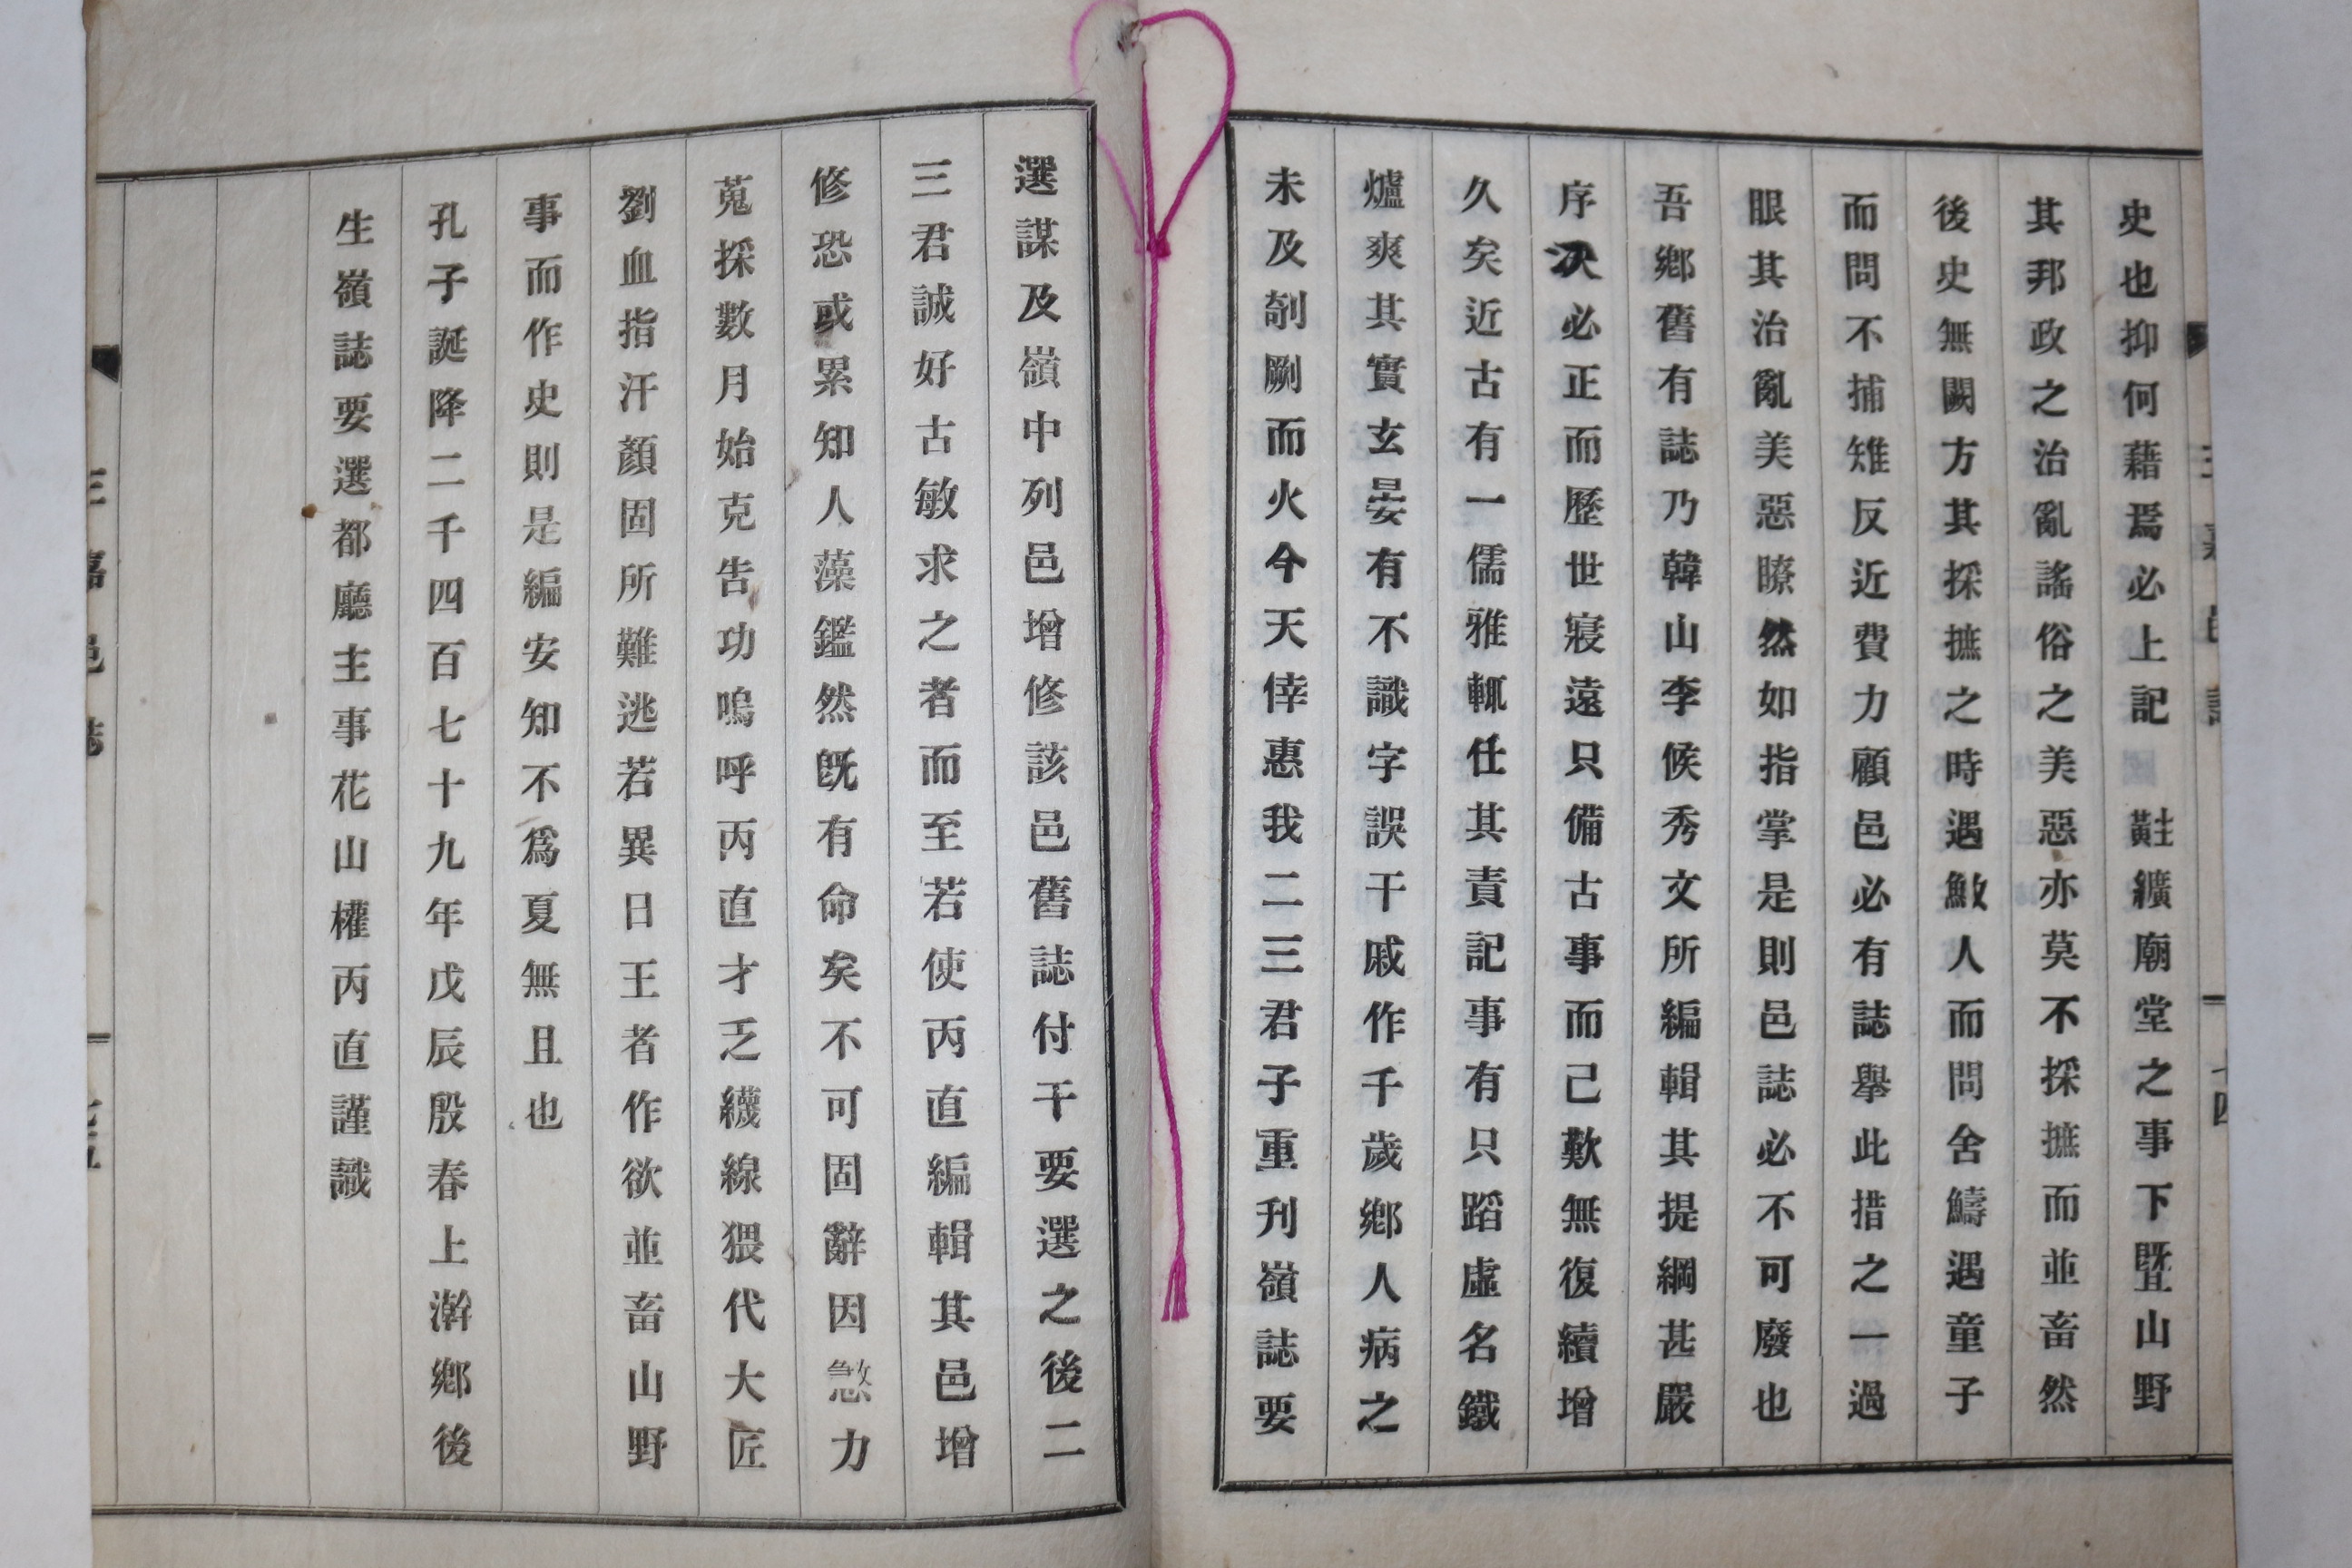 史也抑何藉焉必上記 黈纊廟堂之事下暨山野
其邦政之治亂謠俗之美惡亦莫不採摭而並畜然
後史無闕方其採摭之時遇敏人而問舍鑄遇童子
而問不捕雉反近費力顧邑必有誌擧此措之一過
眼其治亂美惡瞭然如指掌是則邑誌必不可廢也
吾鄕舊有誌乃韓山李候秀文所編輯其提綱甚嚴
序次必正而歷世寢遠只備古事而已歎無復續增
久矣近古有一儒雅輒仕其責記事有只蹈虛名鐵
爐爽其實玄晏有不識字誤干戚作千歲鄕人病之
未及剞劂而火今天倖惠我二三君子重刊嶺誌要
選謀及嶺中列邑增修該邑舊誌付干要選之後二
三君誠好古敏求之者而至若使丙直編輯其邑增
修恐或累知人藻鑑然旣有命矣不可固辭因憋力
蒐採數月始克告功嗚呼丙直才乏綫線猥代大匠
劉血指汗顏固所難逃若異日王者作欲並畜山野
事而作史則是編安知不爲夏無且也
孔子誕降二千四百七十九年戊辰殷春上澣鄕後
生嶺誌要選都廳主事花山權丙直謹識